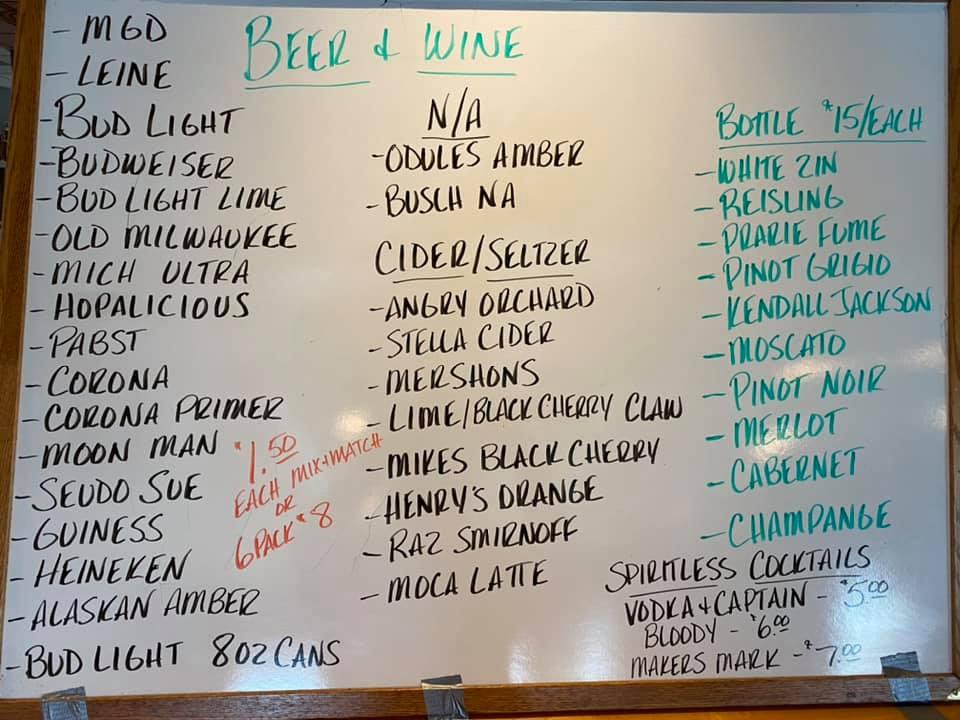 BEER & WINE
- MGD
- LEINE
- BUD LIGHT
- BUDWEISER
- BUD LIGHT LIME
- OLD MILWAUKEE
- MICH ULTRA
- HOPALICIOUS
- PABST
- CORONA
- CORONA PRIMER
- MOON MAN
- SEUDO SUE
- GUINESS
- HEINEKEN
- ALASKAN AMBER
- BUD LIGHT 8OZ CANS
$1.50
EACH MIX+MATCH
OR
6 PACK $8
N/A
- ODULES AMBER
- BUSCH NA
CIDER/SELTZER
- ANGRY ORCHARD
- STELLA CIDER
- MERSHONS
- LIME/BLACK CHERRY CLAW
- MIKES BLACK CHERRY
- HENRY'S ORANGE
- RAZ SMIRNOFF
- MOCA LATTE
BOTTLE $15/EACH
- WHITE ZIN
- REISLING
- PRARIE FUME
- PINOT GRIGIO
- KENDALL JACKSON
- MOSCATO
- PINOT NOIR
- MERLOT
- CABERNET
- CHAMPANGE
SPIRITLESS COCKTAILS
VODKA + CAPTAIN - $5.00
BLOODY - $6.00
MAKERS MARK - $7.00